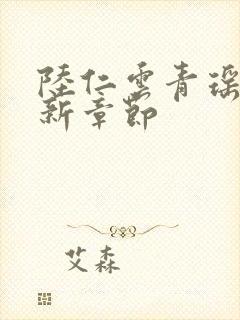 陸仁雲青瑶
新章節
艾森